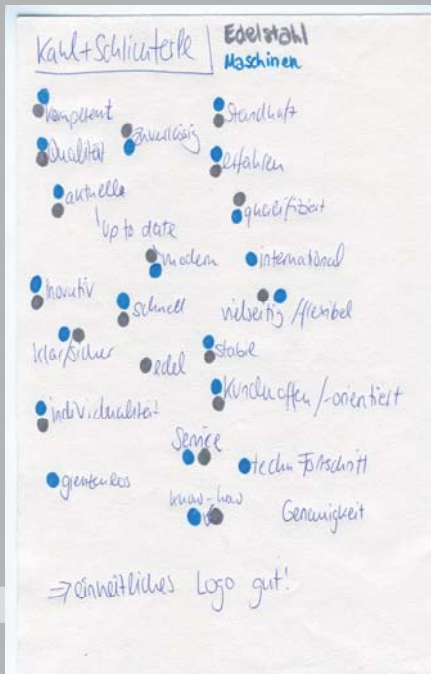 Kahl+Schlichterle
Edelstahl
Maschinen
kompetent
Standhaft
Qualität
zuverlässig
erfahren
aktuelle
qualifiziert
up to date
modern
international
Inovativ
schnell
vielseitig /flexibel
klar/sicher
stabil
edel
Kundenoffen /-orientiert
individualität
Service
techn Fortschritt
grenzenlos
know-how
Genauigkeit
⇒ einheitliches Logo gut!